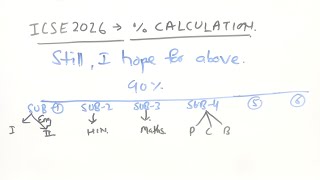 ICSE2026 → % CALCULATION.
Still, I hope for above.
90%
SUB-① SUB-2 SUB-3 SUB-4 ⑤ ⑥
I Eng II HIN. Maths. P C B